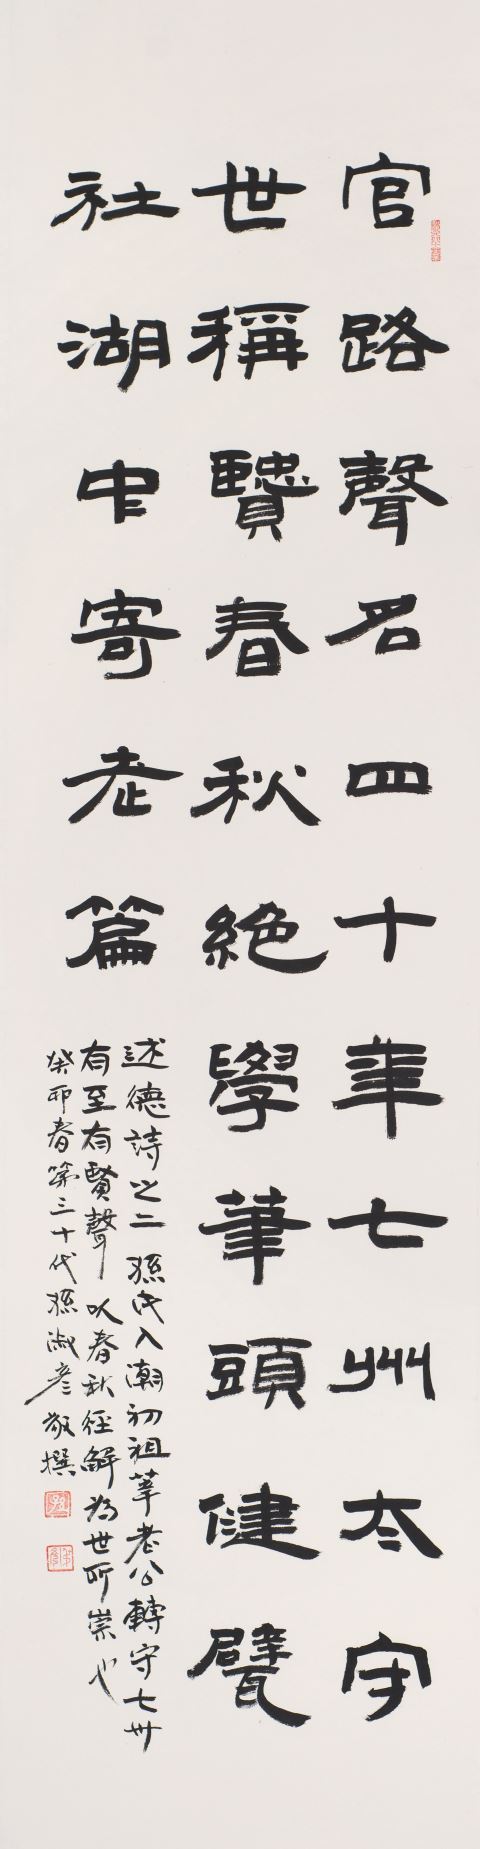 官路聲名四十年七州太守
世稱賢春秋絕學筆頭健甓
社湖中寄老篇
述德詩之二 孫氏入潮初祖莘老公轉守七州
有至有賢聲 以春秋經解為世所崇也
癸卯春第三十代孫淑彥敬撰